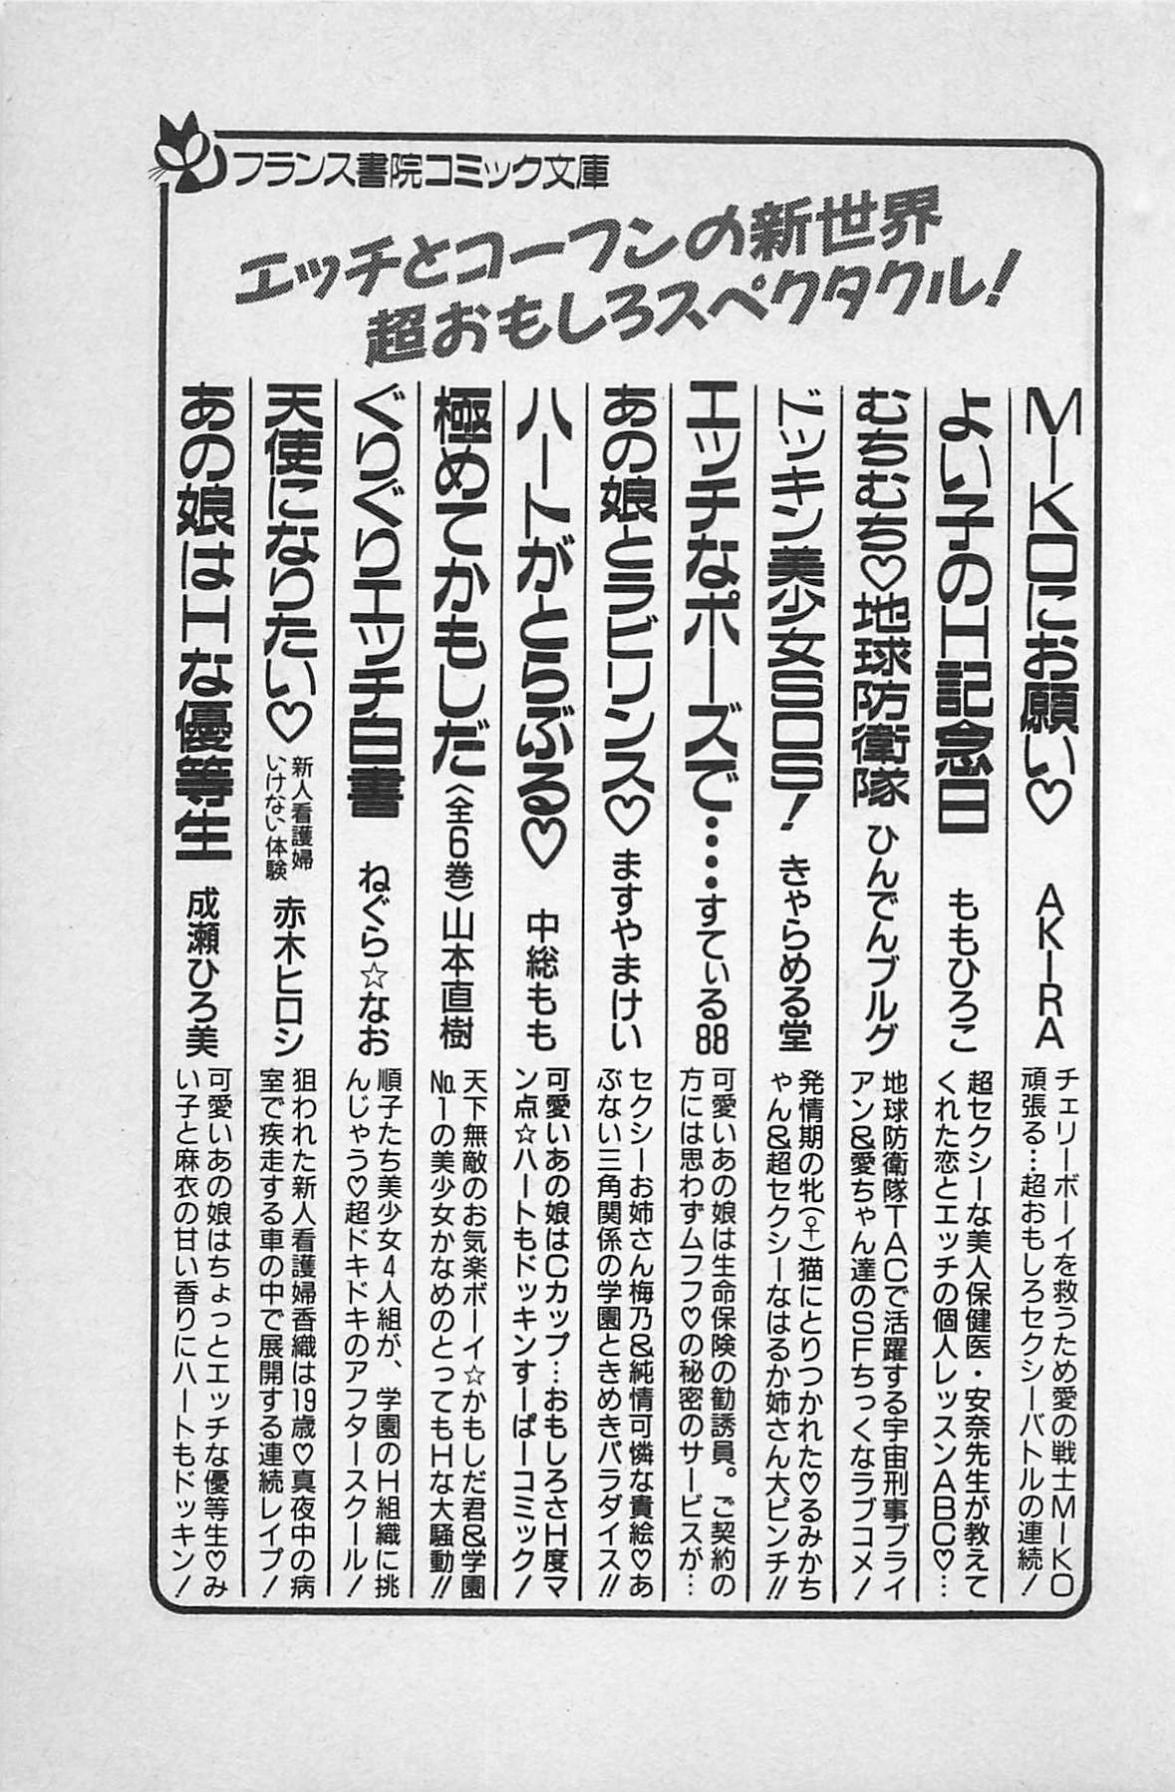 フランス書院コミック文庫
エッチとコーフンの新世界
超おもしろスペクタクル！
MIKOにお願い♡　AKIRA
チェリーボーイを救うため愛の戦士MIKO
頑張る…超おもしろセクシーバトルの連続！
よい子のH記念日　ももひろこ
超セクシーな美人保健医・安奈先生が教えて
くれた恋とエッチの個人レッスンABC♡…
むちむち♡地球防衛隊　ひんでんブルグ
地球防衛隊TACで活躍する宇宙刑事ブライ
アン&愛ちゃん達のSFちっくなラブコメ！
ドッキン美少女SOS！　きゃらめる堂
発情期の牝(♀)猫にとりつかれた♡るみかち
ゃん&超セクシーなはるか姉さん大ピンチ!!
エッチなポーズで‥‥すてぃる88
可愛いあの娘は生命保険の勧誘員。ご契約の
方には思わずムフフ♡の秘密のサービスが…
あの娘とラビリンス♡　ますやまけい
セクシーお姉さん梅乃&純情可憐な貴絵♡あ
ぶない三角関係の学園ときめきパラダイス!!
ハートがとらぶる♡　中総もも
可愛いあの娘はCカップ…おもしろさH度マ
ン点☆ハートもドッキンすーぱーコミック！
極めてかもしだ〈全6巻〉山本直樹
天下無敵のお気楽ボーイ☆かもしだ君&学園
No.1の美少女かなめのとってもHな大騒動!!
ぐりぐりエッチ白書　ねぐら☆なお
順子たち美少女4人組が、学園のH組織に挑
んじゃう♡超ドキドキのアフタースクール！
天使になりたい♡
新人看護婦
いけない体験
赤木ヒロシ
狙われた新人看護婦香織は19歳♡真夜中の病
室で疾走する車の中で展開する連続レイプ！
あの娘はHな優等生　成瀬ひろ美
可愛いあの娘はちょっとエッチな優等生♡み
い子と麻衣の甘い香りにハートもドッキン！